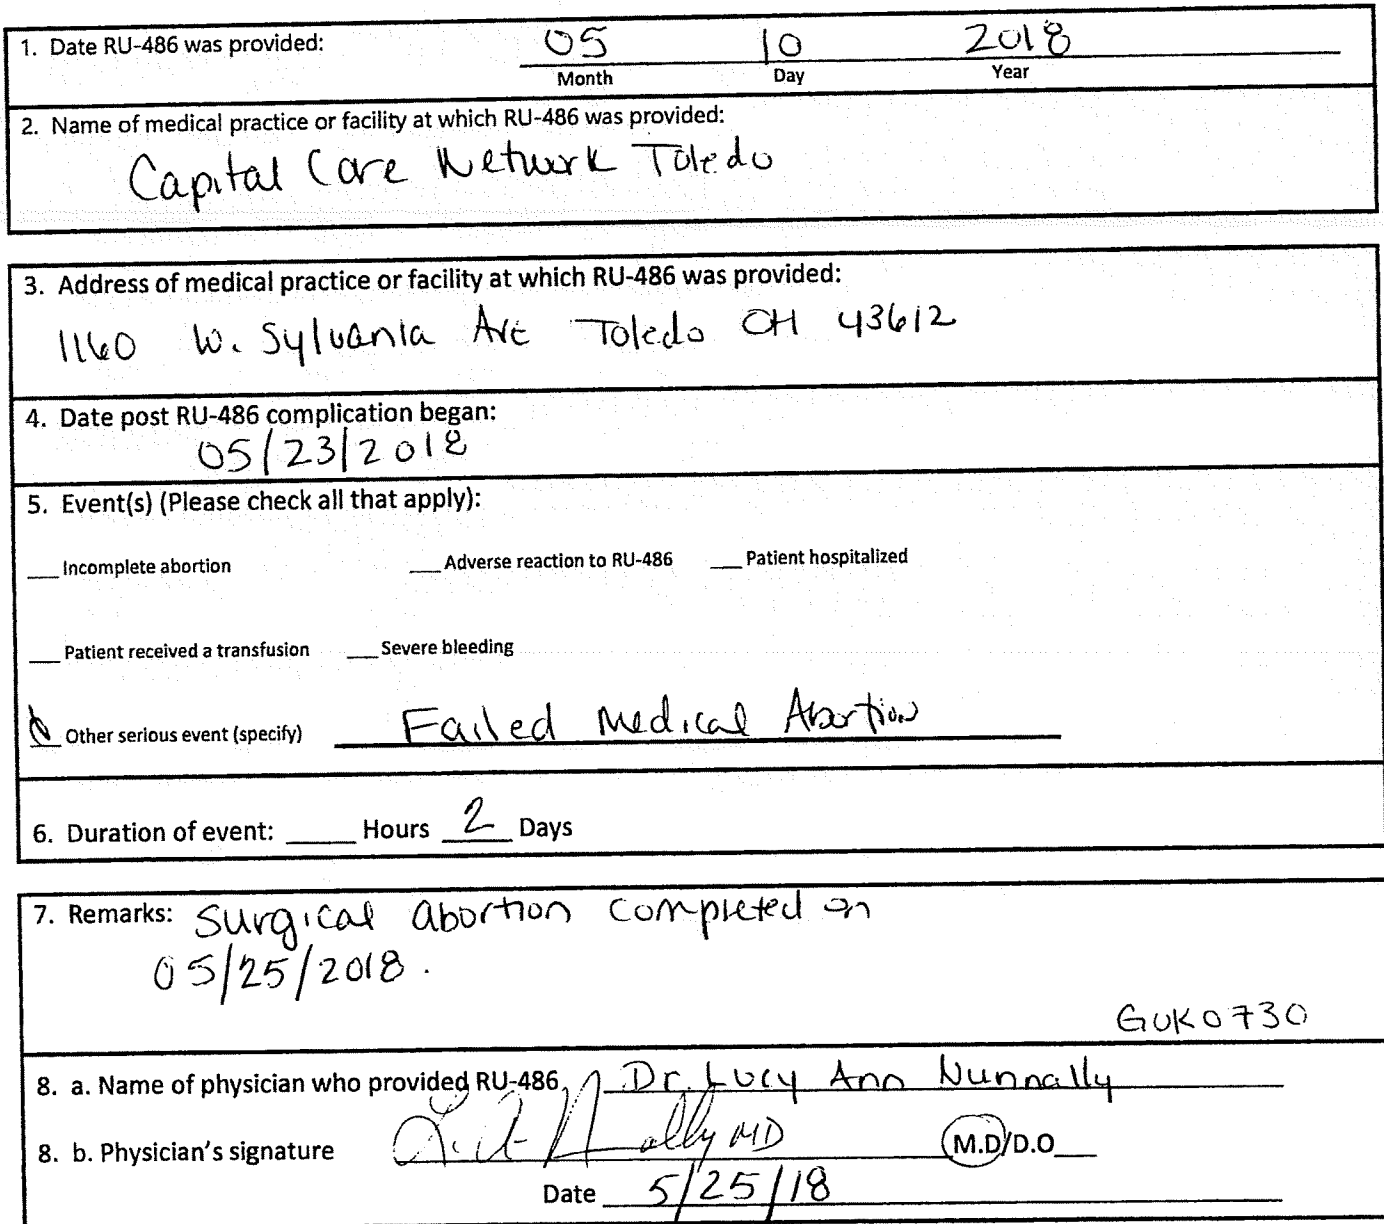 1. Date RU-486 was provided: 05 10 2018
Month Day Year
2. Name of medical practice or facility at which RU-486 was provided:
Capital Care Network Toledo
3. Address of medical practice or facility at which RU-486 was provided:
1160 W. Sylvania Ave Toledo OH 43612
4. Date post RU-486 complication began:
05/23/2018
5. Event(s) (Please check all that apply):
___ Incomplete abortion ___ Adverse reaction to RU-486 ___ Patient hospitalized
___ Patient received a transfusion ___ Severe bleeding
Other serious event (specify) Failed Medical Abortion
6. Duration of event: ____ Hours 2 Days
7. Remarks: Surgical abortion completed on
05/25/2018.
GUK0730
8. a. Name of physician who provided RU-486 Dr. Lucy Ann Nunnally
8. b. Physician's signature MD M.D/D.O___
Date 5/25/18